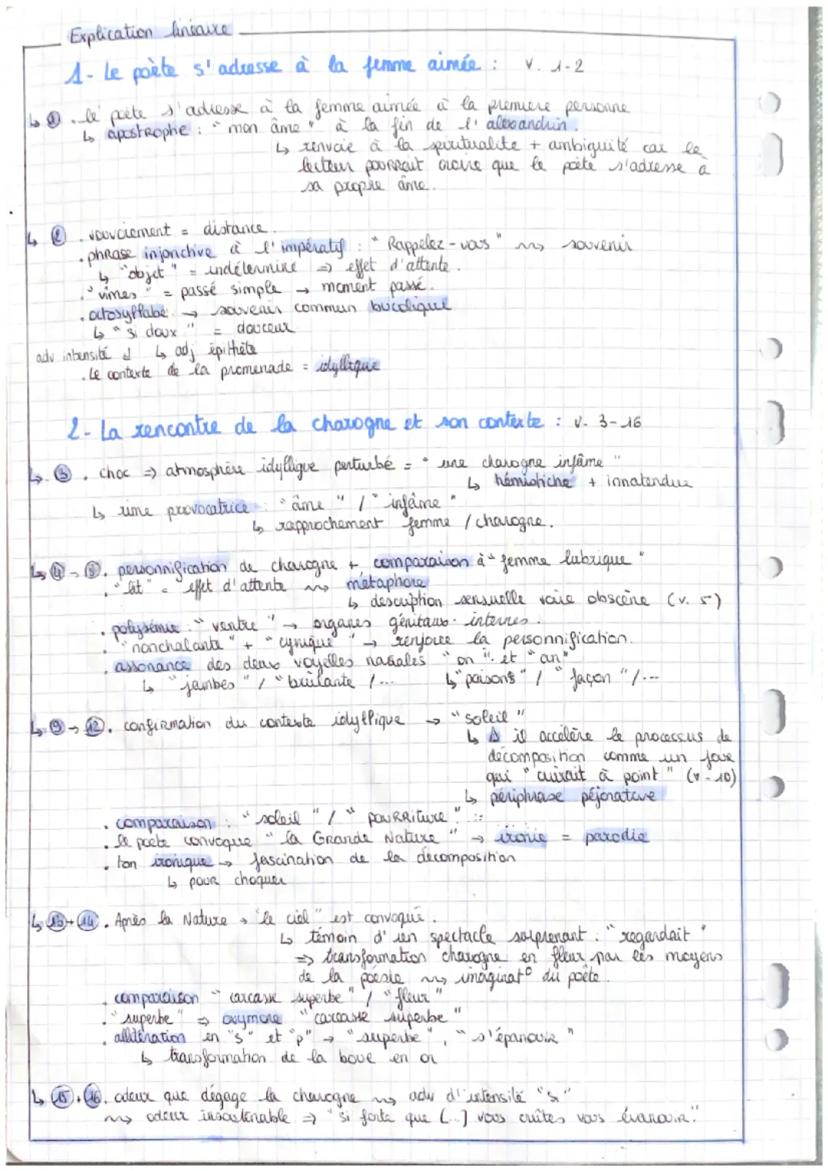 Explication linéaire
1- Le poète s'adresse à la femme aimée : v. 1-2
↳ ① . le poète s'adresse à la femme aimée à la première personne
↳ apostrophe : "mon âme" à la fin de l'alexandrin.
↳ renvoie à la spiritualité + ambiguïté car le
lecteur pourrait croire que le poète s'adresse à
sa propre âme.
↳ ② . vouvoiement = distance
. phrase injonctive à l'impératif : "Rappelez-vous" ⇝ souvenir
↳ "objet" = indéterminé ⇒ effet d'attente.
. "vîmes" = passé simple → moment passé.
. octosyllabe → souvenir commun bucolique
↳ "si doux" = douceur
adv intensité ↲ ↳ adj épithète
. Le contexte de la promenade = idyllique
2- La rencontre de la charogne et son contexte : v. 3-16
↳ ③ . choc ⇒ atmosphère idyllique perturbé = "une charogne infâme"
↳ hémistiche + innatendue
↳ rime provocatrice : "âme" / "infâme"
↳ rapprochement femme / charogne.
↳ ④ - ⑧ . personnification de charogne + comparaison à "femme lubrique"
. "lit" = effet d'attente ⇝ métaphore
↳ description sensuelle voire obscène (v. 5)
. polysémie : "ventre" → organes génitaux internes.
. "nonchalante" + "cynique" → renforce la personnification.
. assonance des deux voyelles nasales "on" et "an"
↳ "jambes" / "brûlante /... ↳ "poisons" / "façon" /...
↳ ⑨ → ⑫ . confirmation du contexte idyllique → "soleil"
↳ ⚠ il accélère le processus de
décomposition comme un four
qui "cuirait à point" (v-10)
↳ périphrase péjorative
. comparaison : "soleil" / "pourriture"
. le poète convoque "la Grande Nature" → ironie = parodie
. ton ironique → fascination de la décomposition
↳ pour choquer
↳ ⑬ + ⑭ . Après la Nature, "le ciel" est convoqué.
↳ témoin d'un spectacle surprenant : "regardait"
⇒ transformation charogne en fleur par les moyens
de la poésie ⇝ imaginat° du poète.
. comparaison "carcasse superbe" / "fleur"
. "superbe" ⇒ oxymore "carcasse superbe"
. allitération en "s" et "p" → "superbe", "s'épanouir"
↳ transformation de la boue en or
↳ ⑮ + ⑯ . odeur que dégage la charogne ⇝ adv d'intensité "si"
⇝ odeur insoutenable ⇒ "si forte que [...] vous crûtes vous évanouir."